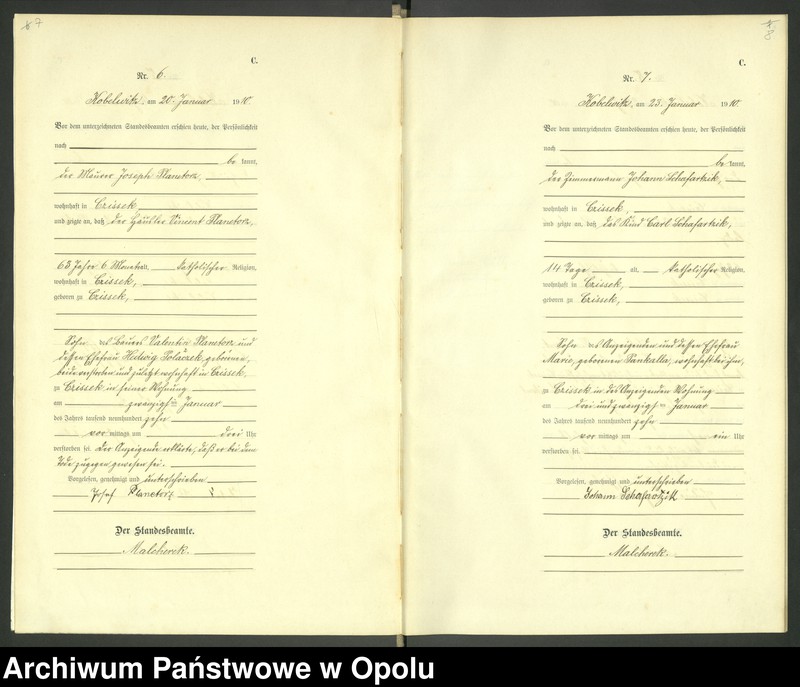 7
C.
Nr. 6.
Kobelwitz, am 20. Januar 1910.
Vor dem unterzeichneten Standesbeamten erschien heute, der Persönlichkeit
nach
be kannt,
der Maurer Joseph Planetorz,
wohnhaft in Crissek
und zeigte an, daß der Häusler Vincent Planetorz,
63 Jahre 6 Monate alt, katholischer Religion,
wohnhaft in Crissek,
geboren zu Crissek,
Sohn des Bauers Valentin Planetorz und
dessen Ehefrau Hedwig Polaczek geborenen,
beide verstorben und zuletzt wohnhaft in Crissek,
zu Crissek in seiner Wohnung
am zwanzigsten Januar
des Jahres tausend neunhundert zehn
vor mittags um drei Uhr
verstorben sei. Der Anzeigende erklärte, daß er bei dem
Tode zugegen gewesen sei.
Vorgelesen, genehmigt und unterschrieben
Josef Planetorz
Der Standesbeamte.
Malcherek.
8
C.
Nr. 7.
Kobelwitz, am 23. Januar 1910.
Vor dem unterzeichneten Standesbeamten erschien heute, der Persönlichkeit
nach
be kannt,
der Zimmermann Johann Schafartzik,
wohnhaft in Crissek,
und zeigte an, daß das Kind Carl Schafartzik,
14 Tage alt, katholischer Religion,
wohnhaft in Crissek,
geboren zu Crissek,
Sohn des Anzeigenden und dessen Ehefrau
Marie, geborenen Pankalla, wohnhaft bei ihm,
zu Crissek in des Anzeigenden Wohnung
am drei und zwanzigsten Januar
des Jahres tausend neunhundert zehn
vor mittags um ein Uhr
verstorben sei.
Vorgelesen, genehmigt und unterschrieben
Johann Schafartzik
Der Standesbeamte.
Malcherek.
Archiwum Państwowe w Opolu